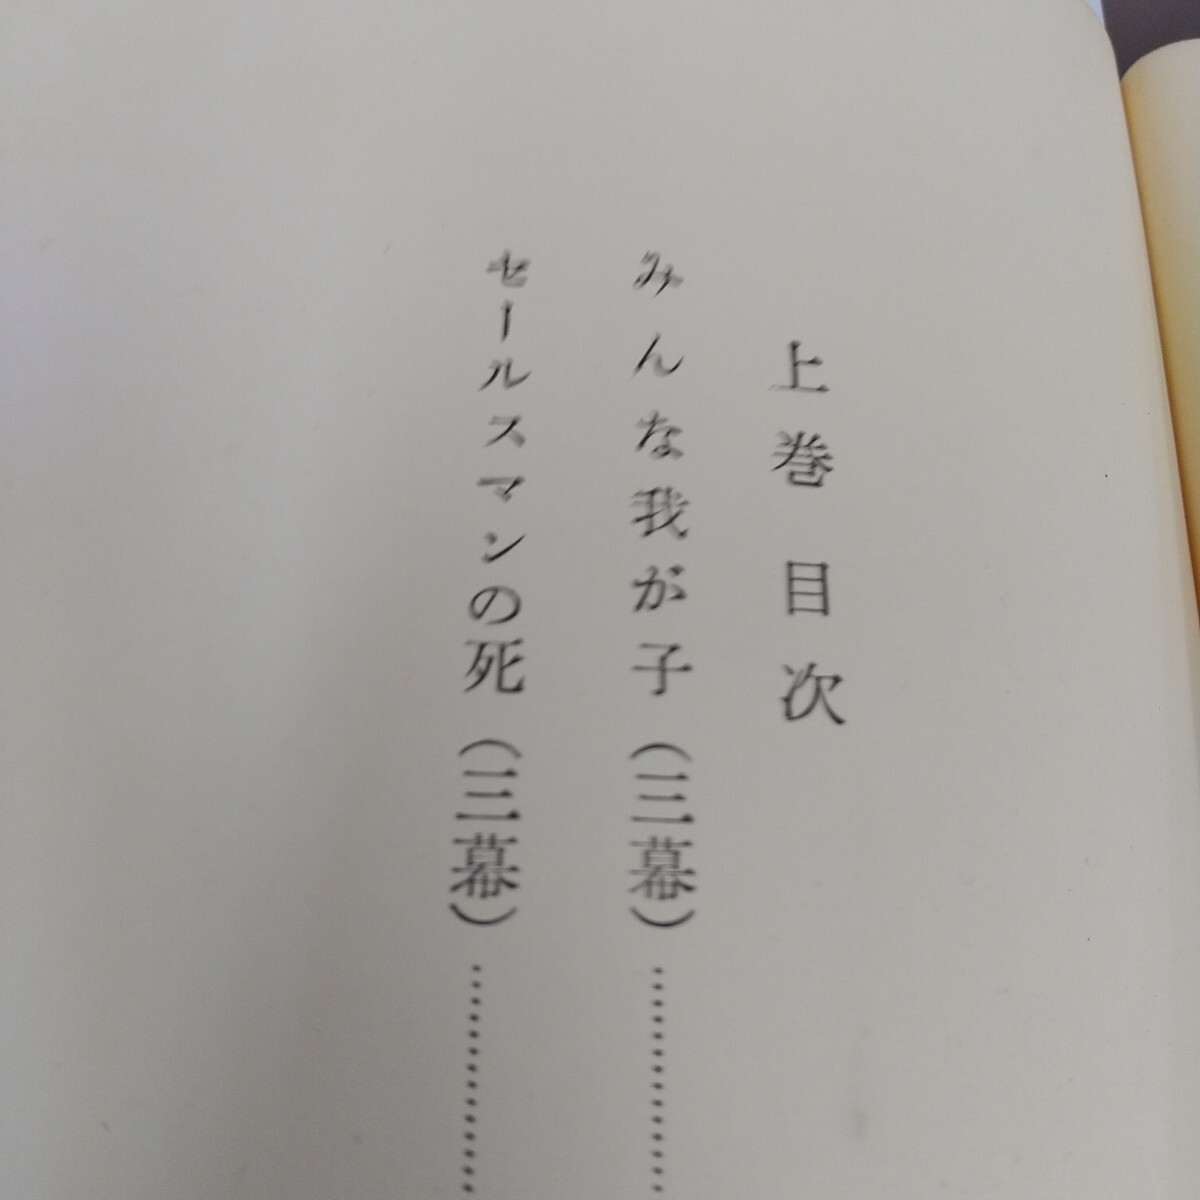 上巻 目次
みんな我が子(三幕)……………
セールスマンの死(三幕)……………